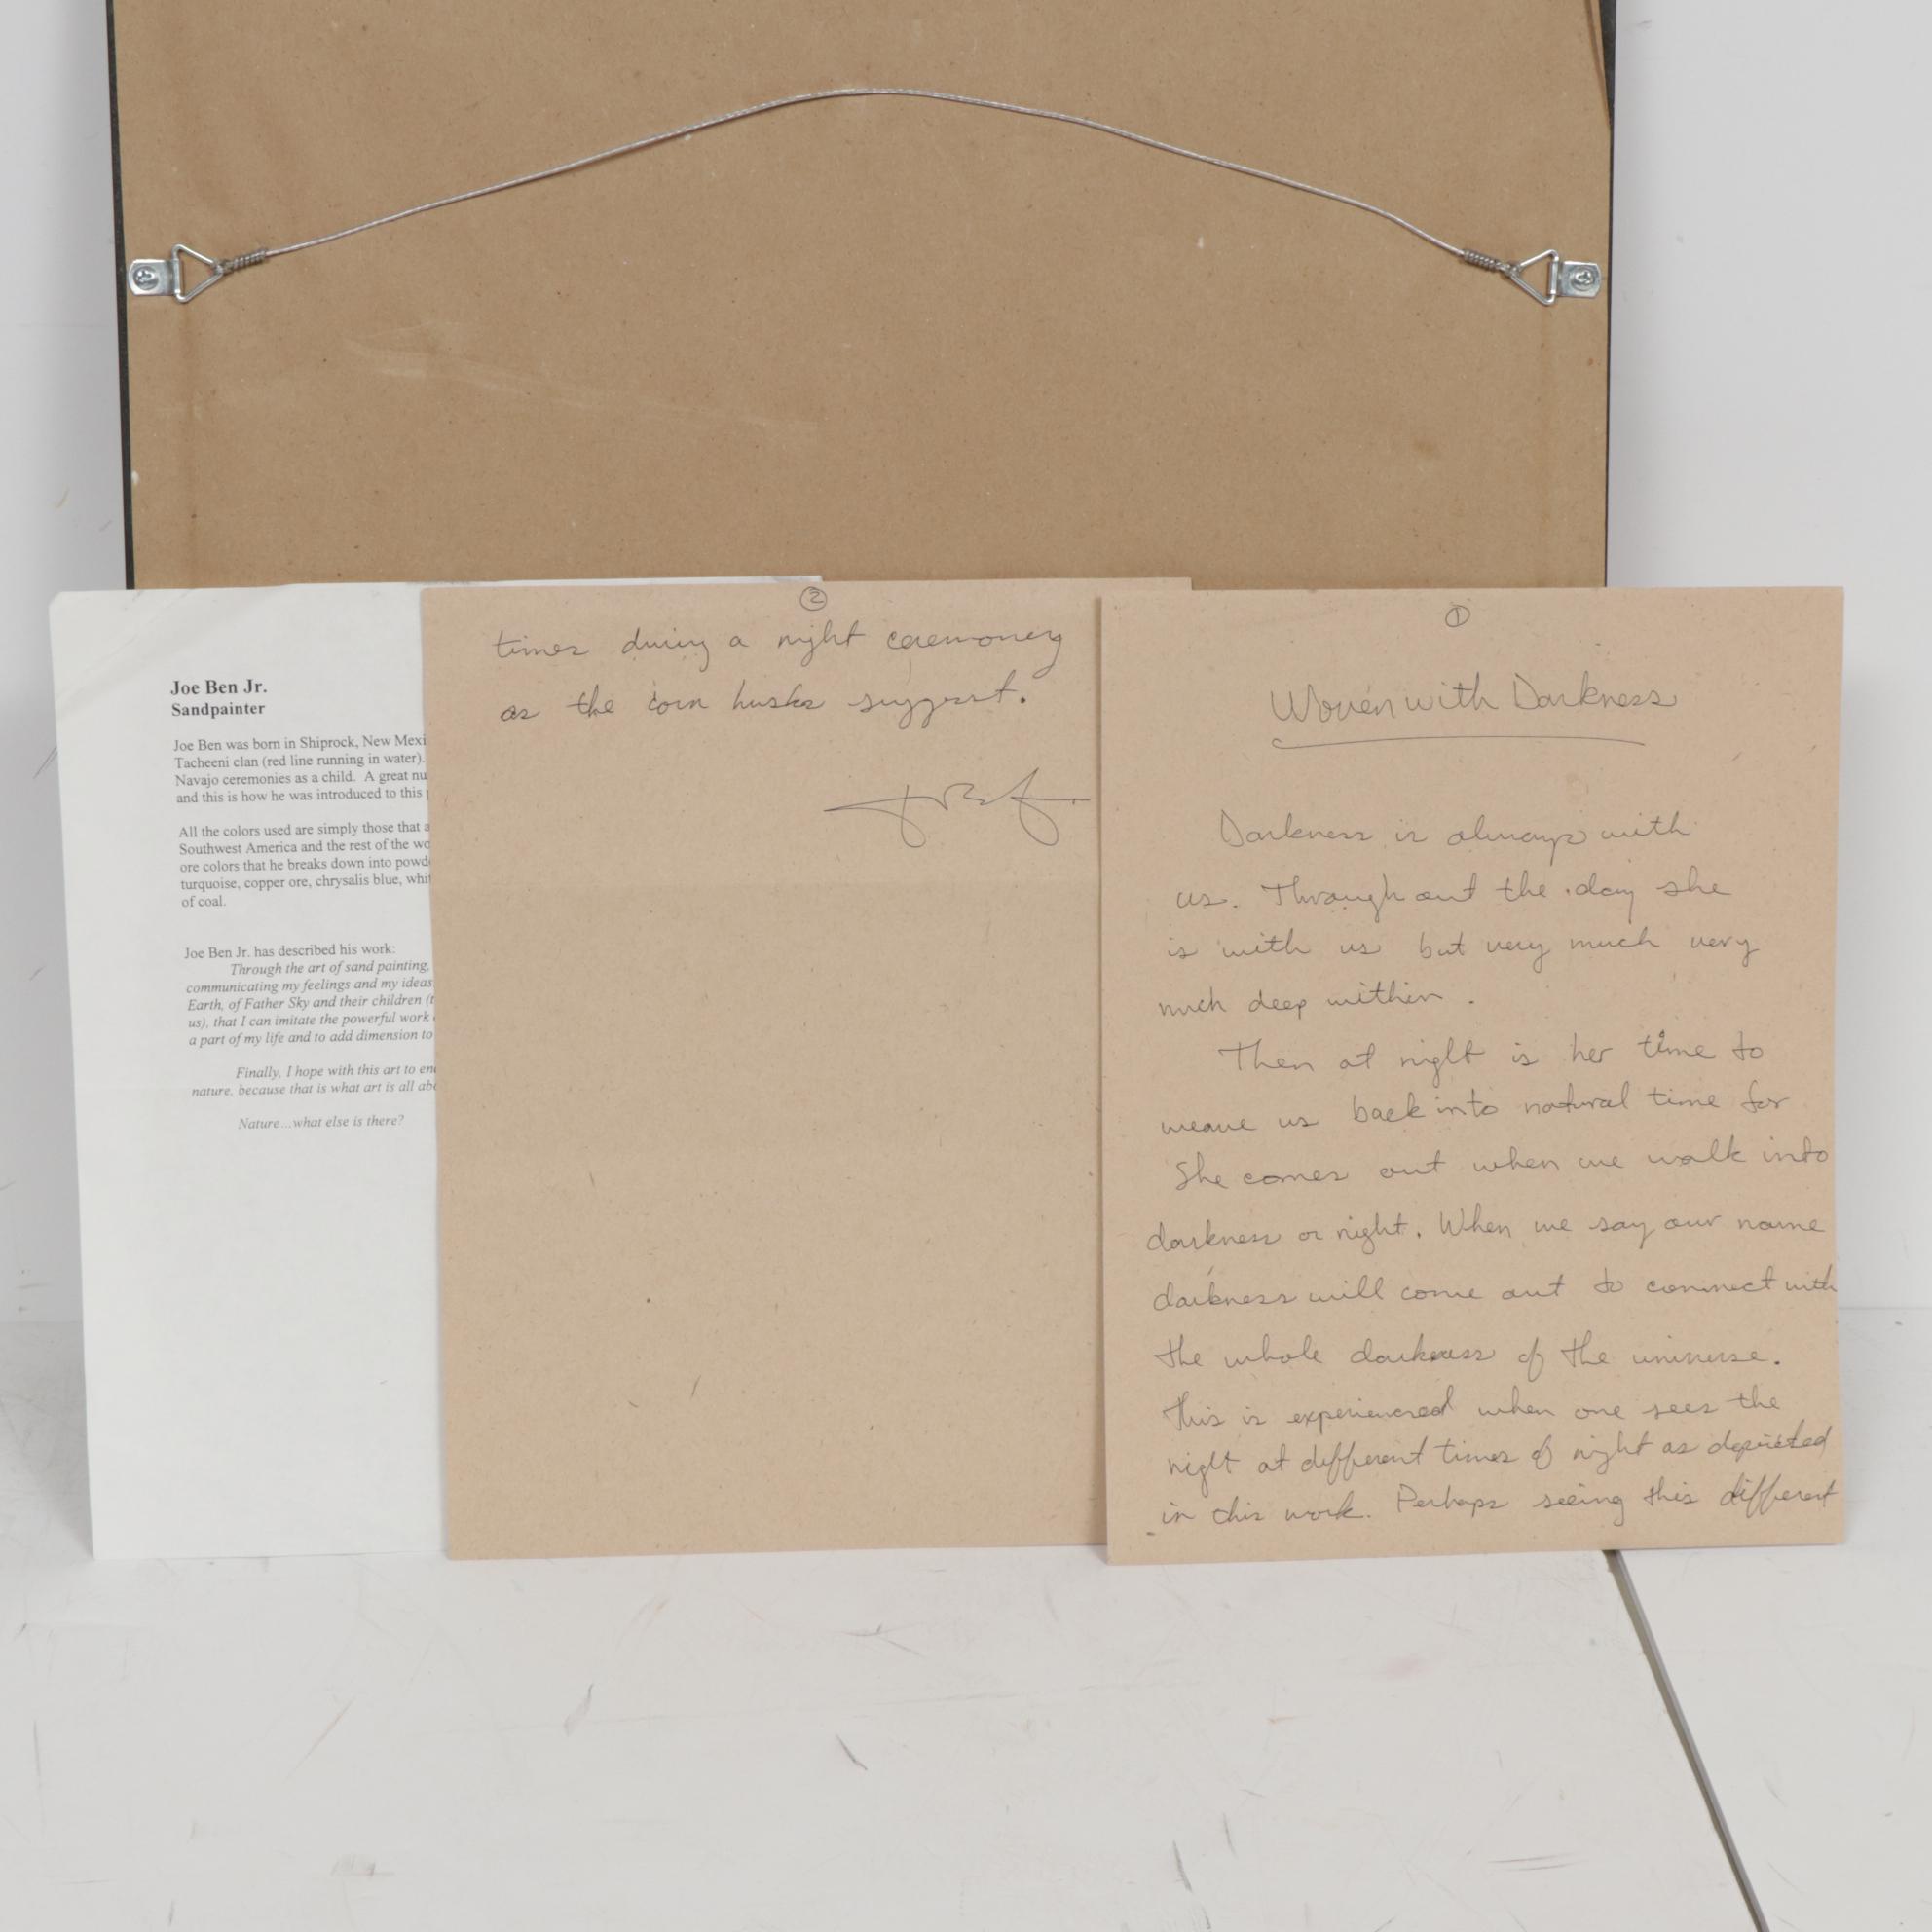 Joe Ben Jr.
Sandpainter
Joe Ben was born in Shiprock, New Mexi
Tacheeni clan (red line running in water).
Navajo ceremonies as a child. A great nu
and this is how he was introduced to this
All the colors used are simply those that a
Southwest America and the rest of the wo
ore colors that he breaks down into powd
turquoise, copper ore, chrysalis blue, whit
of coal.
Joe Ben Jr. has described his work:
Through the art of sand painting,
communicating my feelings and my ideas
Earth, of Father Sky and their children (t
us), that I can imitate the powerful work
a part of my life and to add dimension to
Finally, I hope with this art to en
nature, because that is what art is all abo
Nature...what else is there?
②
times during a night ceremoney
as the corn husks suggest.
①
Woven with Darkness
Darkness is always with
us. Through out the day she
is with us but very much very
much deep within.
Then at night is her time to
weave us back into natural time for
She comes out when we walk into
darkness or night. When we say our name
darkness will come out to connect with
the whole darkness of the universe.
This is experienced when one sees the
night at different times of night as depicted
in this work. Perhaps seeing this different